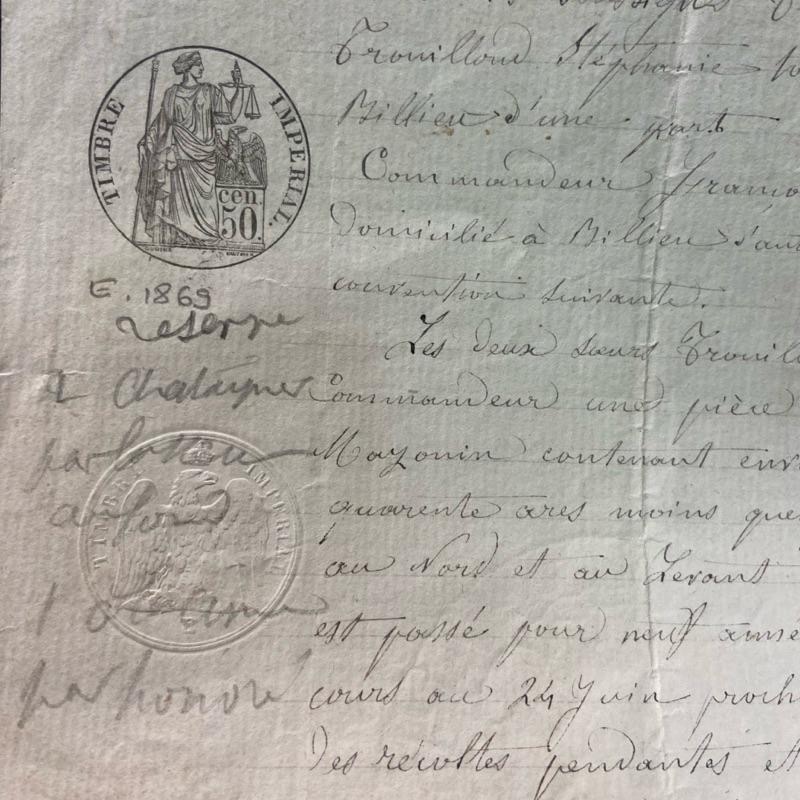 soussignés
Trouilloud Stéphanie
Billieu d'une part
Commandeur Franço
Domicilié à Billieu d'aut
convention suivante.
Les deux sœurs Trouil
Commandeur une pièce
Mayonin contenant envi
quarente ares moins que
au Nord et au Levant
est passé pour neuf anné
cours au 24 Juin proch
des récoltes pendantes et
TIMBRE IMPERIAL.
cen.
50.
E. 1869
reserve
1 Chataigner
par
au fond
1
par honoré
TIMBRE IMPERIAL